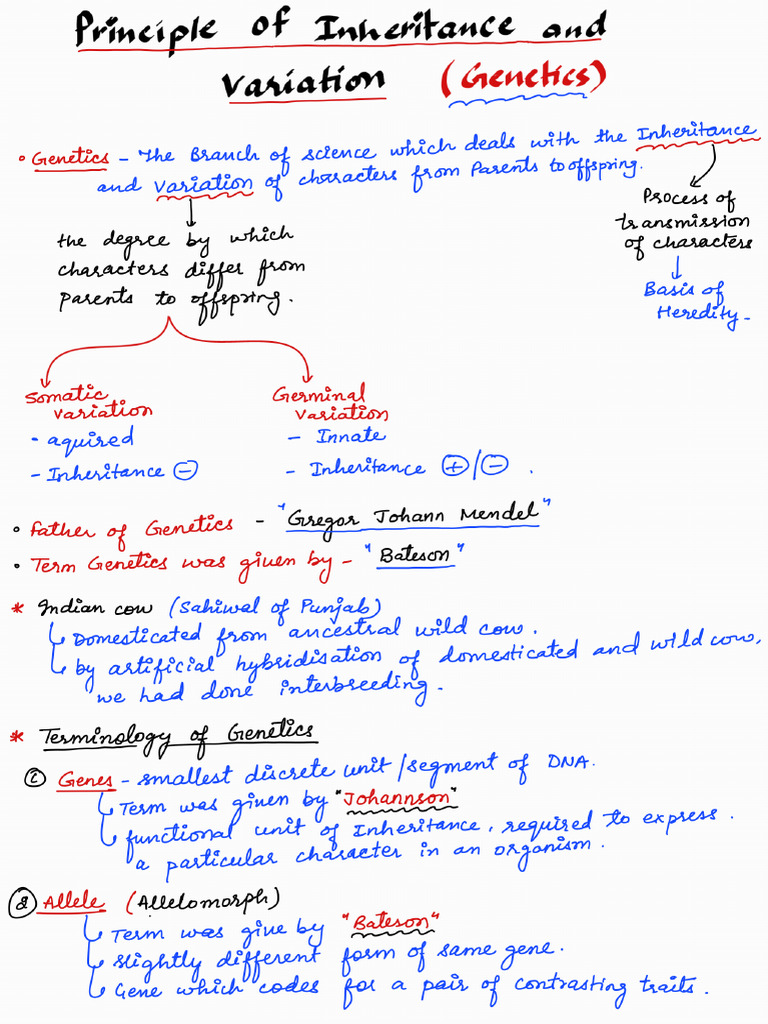 Principle of Inheritance and
Variation (Genetics)
• Genetics – The Branch of science which deals with the Inheritance
and variation of characters from Parents to offspring.
Process of
transmission
of characters
Basis of
Heredity –
the degree by which
characters differ from
Parents to offspring.
Somatic
variation
• aquired
– Inheritance ⊖
Germinal
Variation
– Innate
– Inheritance ⊕/⊖ .
• Father of Genetics – "Gregor Johann Mendel"
• Term Genetics was given by – "Bateson"
* Indian cow (Sahiwal of Punjab)
Domesticated from ancestral wild cow.
by artificial hybridisation of domesticated and wild cow,
we had done interbreeding.
* Terminology of Genetics
① Genes – smallest discrete unit/segment of DNA.
Term was given by "Johannson"
functional unit of Inheritance, required to express.
a particular character in an organism.
② Allele (Allelomorph)
Term was give by "Bateson"
slightly different form of same gene.
Gene which codes for a pair of contrasting traits.